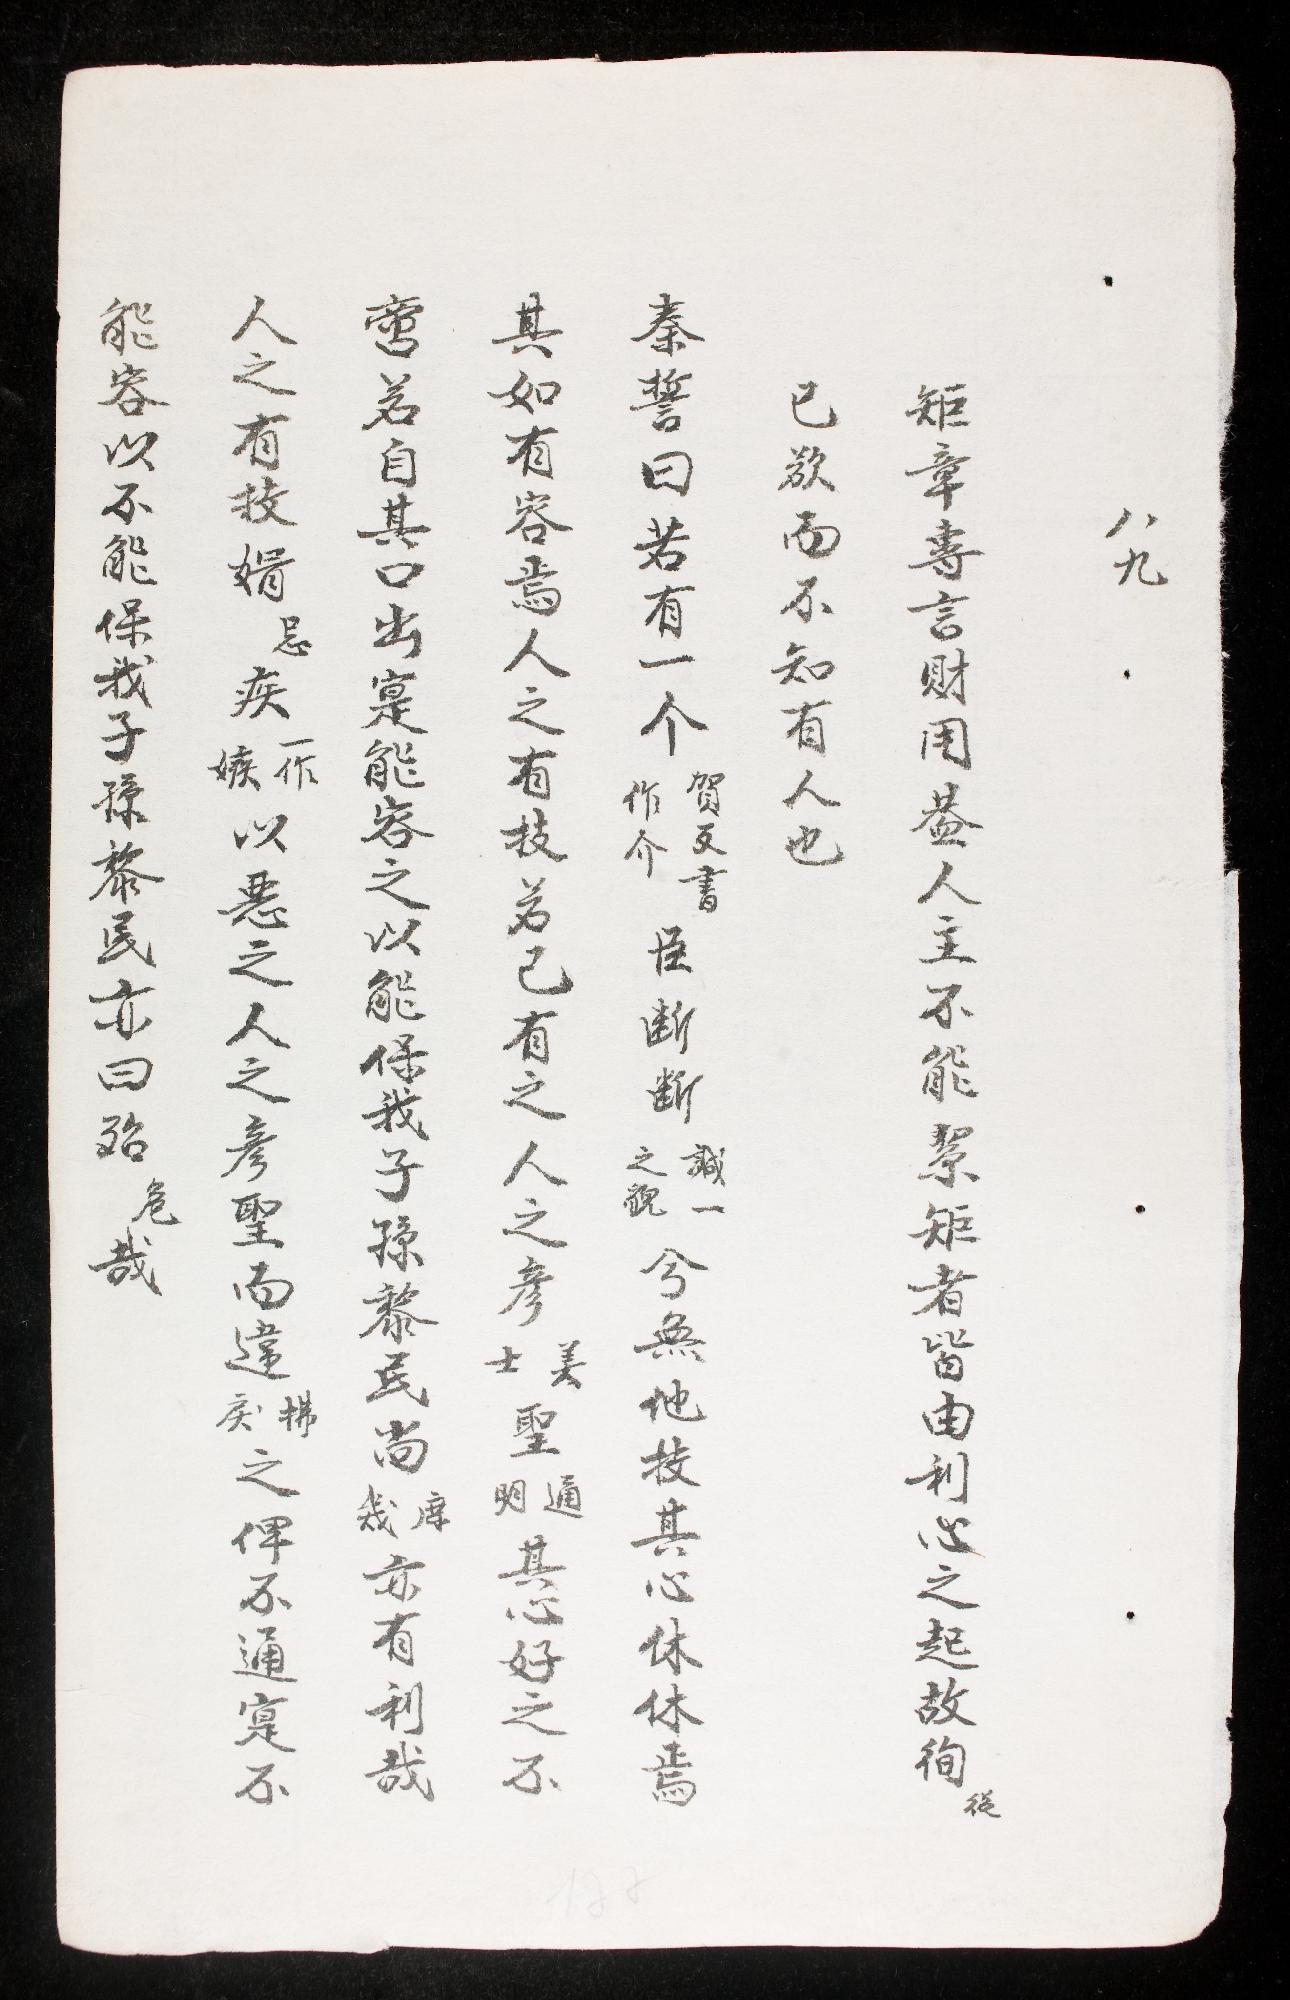 八九
矩章專言財用蓋人主不能絜矩者皆由利心之起故徇從
己欲而不知有人也
秦誓曰若有一个賀反書作介臣斷斷誠一之貌兮無他技其心休休焉
其如有容焉人之有技若己有之人之彥美士聖通明其心好之不
啻若自其口出寔能容之以能保我子孫黎民尚庶幾亦有利哉
人之有技媢忌疾一作嫉以惡之人之彥聖而違拂戾之俾不通寔不
能容以不能保我子孫黎民亦曰殆危哉